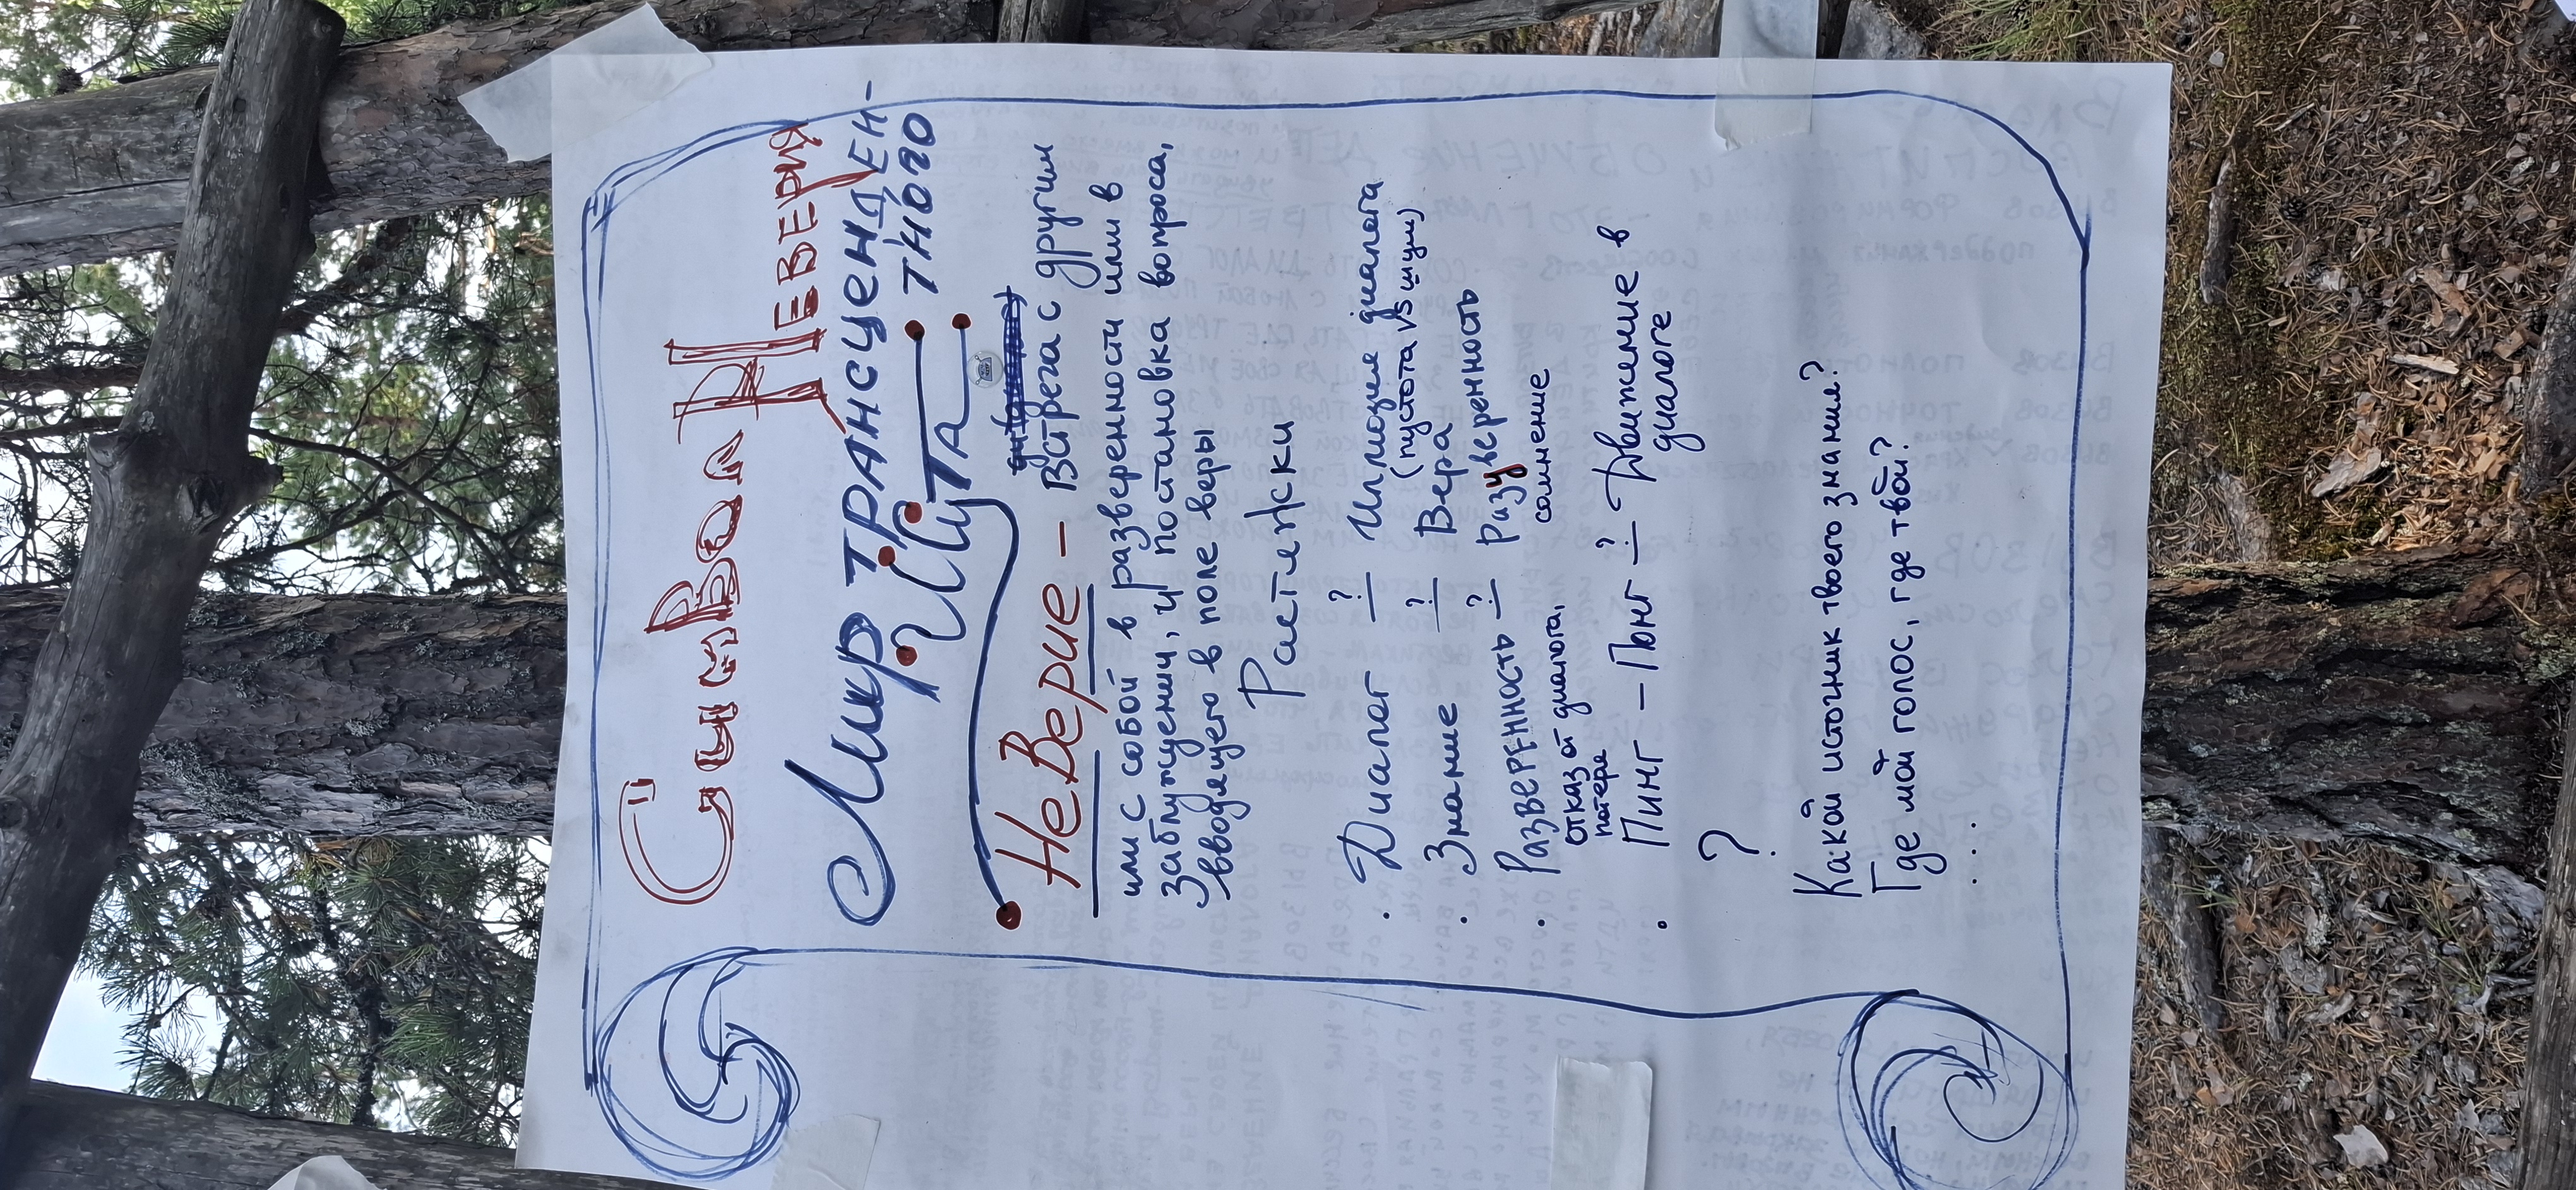 Символ
Неверия
Мир трансценден-
тного
Шута
НеВерие – встреча с другим
или с собой в разверенности или в
заблуждении, и постановка вопроса,
вводящего в поле веры
Растяжки
. Диалог ? — Иллюзия диалога
(пустота vs шум)
. Знание ? — Вера
. Разверенность ? — Разуверенность
отказ от диалога, сомнение
потеря
. Пинг – Понг ? — Движение в
диалоге
?
Какой источник твоего знания?
Где мой голос, где твой?
...